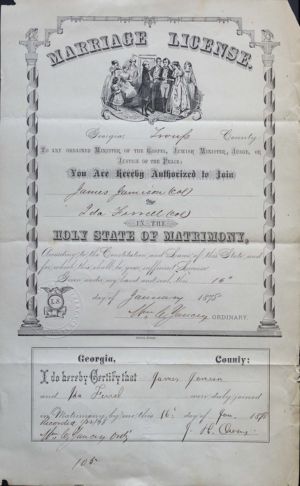 MARRIAGE LICENSE.
Georgia, Troup County
TO ANY ORDAINED MINISTER OF THE GOSPEL, JEWISH MINISTER, JUDGE, OR
JUSTICE OF THE PEACE:
You Are Hereby Authorized to Join
James Jamison (Col)
and
Ida Ferrell (Col)
IN THE
HOLY STATE OF MATRIMONY,
According to the Constitution and Laws of this State, and
for which this shall be your sufficient License
Given under my hand and seal, this 16th
day of January 1878
Wm C Yancey ORDINARY.
L.S.
Georgia, County:
I do hereby Certify that James Jemison
and Ida Ferrel were duly joined
in Matrimony by me this 16 day of Jan. 1878
Recorded
Wm C Yancey Ord J. R. Owens
105